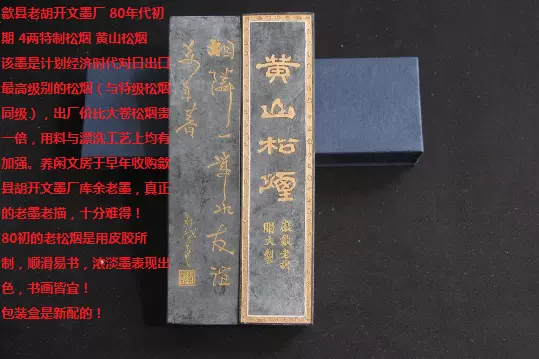 歙县老胡开文墨厂 80年代初
期 4两特制松烟 黄山松烟
该墨是计划经济时代对日出口
最高级别的松烟（与特级松烟
同级），出厂价比大卷松烟贵
一倍，用料与漂洗工艺上均有
加强。养闲文房于早年收购歙
县胡开文墨厂库余老墨，真正
的老墨老描，十分难得！
80初的老松烟是用皮胶所
制，顺滑易书，浓淡墨表现出
色，书画皆宜！
包装盒是新配的！
黄山松煙